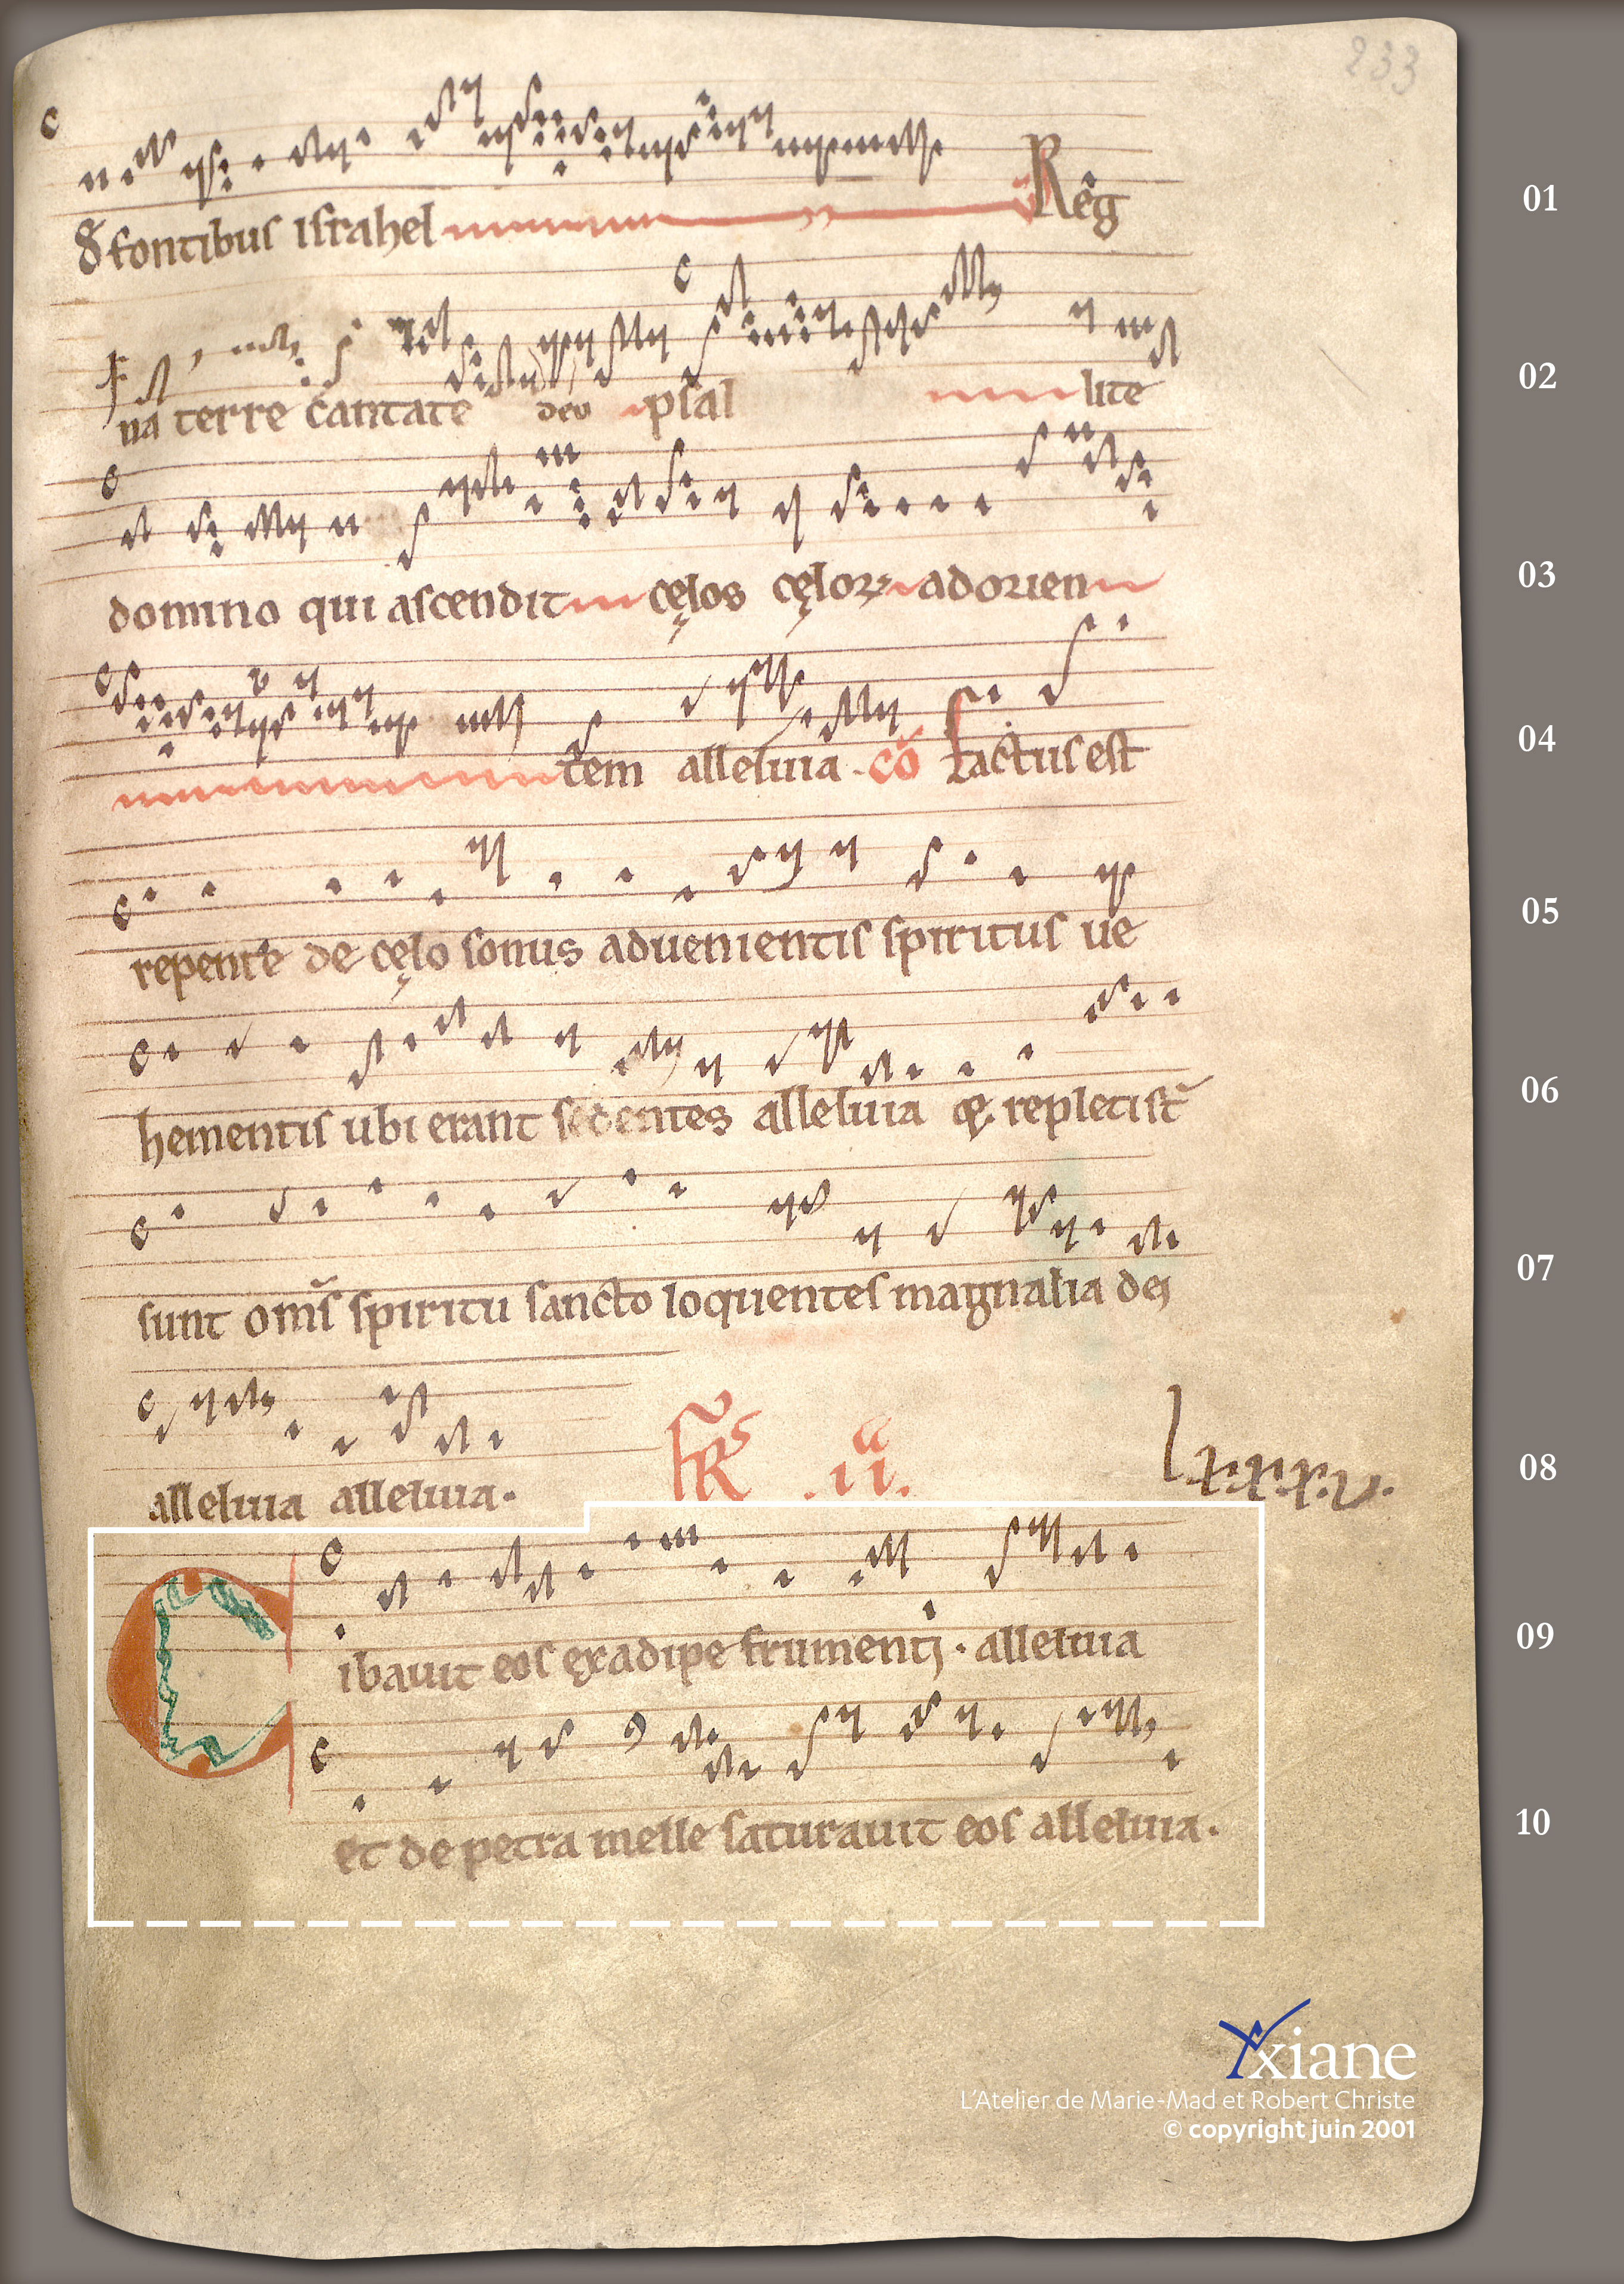 233
de fontibus israhel Reg 01
na terre cantate deo psal lite 02
domino qui ascendit cęlos cęlorꝝ ad orien 03
tem alleluia · cō factus est 04
repente de cęlo sonus aduenientis spiritus ue 05
hementis ubi erant sedentes alleluia repleti st̄ 06
sunt om̄s spiritu sancto loquentes magnalia dei 07
alleluia alleluia · .ii. lxxxv. 08
Cibauit eos ex adipe frumenti · alleluia 09
et de petra melle saturauit eos alleluia · 10
Yxiane
L'Atelier de Marie-Mad et Robert Christe
© copyright juin 2001